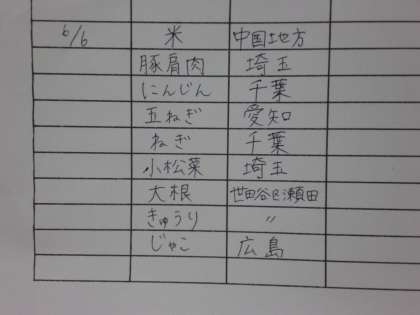 6/6 米 中国地方
豚肩肉 埼玉
にんじん 千葉
玉ねぎ 愛知
ねぎ 千葉
小松菜 埼玉
大根 世田谷区瀬田
きゅうり 〃
じゃこ 広島